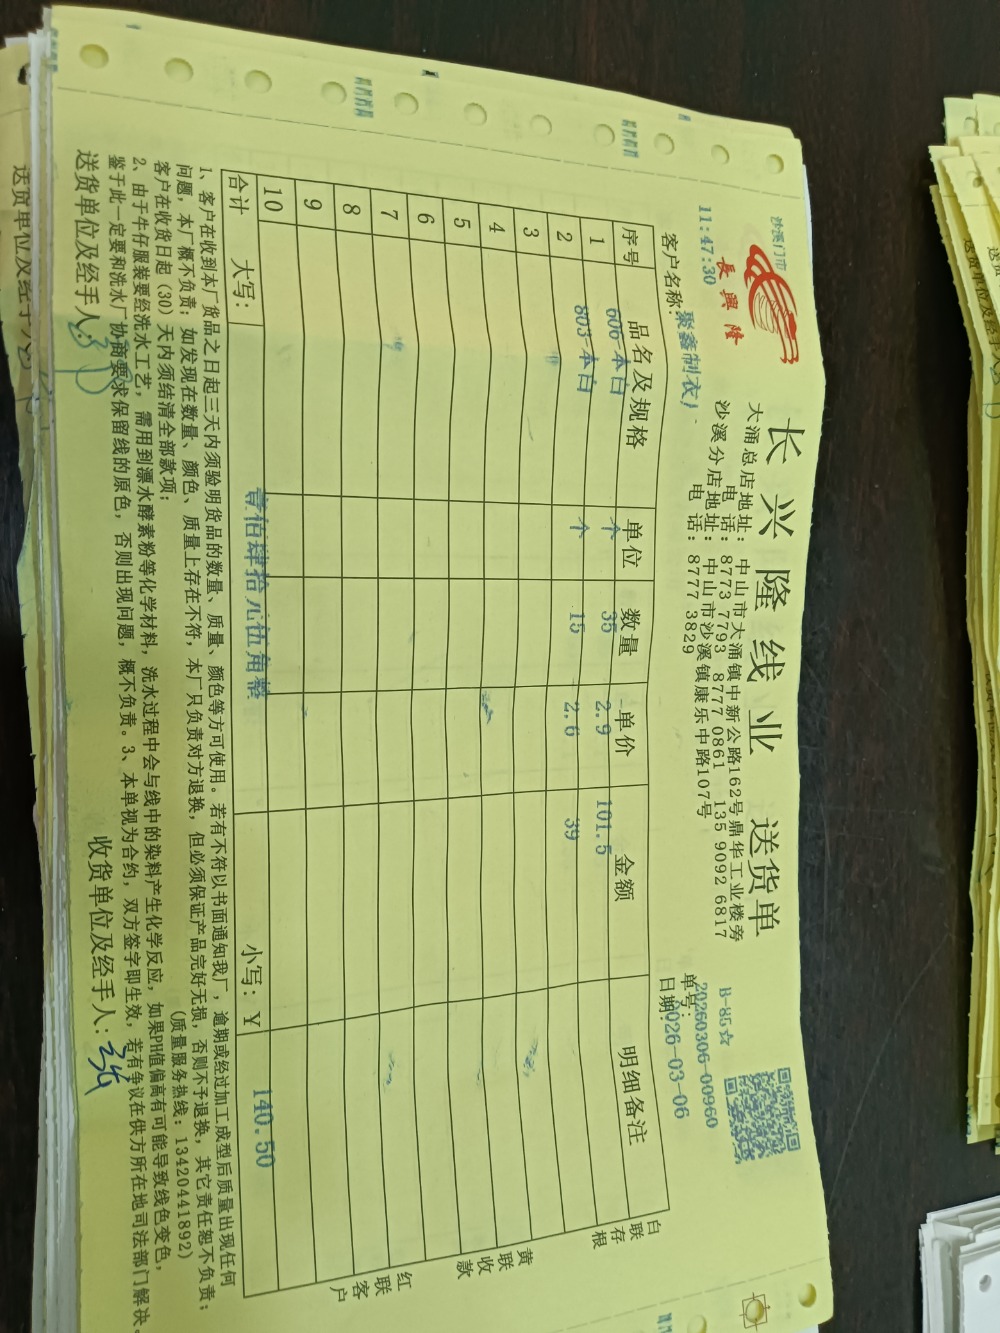 沙溪门市
長興隆
11:47:30
长兴隆线业 送货单
大涌总店地址: 中山市大涌镇中新公路162号鼎华工业楼旁
电 话: 8773 7793 8777 0861 135 9092 6817
沙溪分店地址: 中山市沙溪镇康乐中路107号
电 话: 8777 3829
B-85☆
单号: 20260306-00960
客户名称: 聚鑫制衣厂
日期: 2026-03-06
序号 品名及规格 单位 数量 单价 金额 明细备注
1 606-本白 个 35 2.9 101.5
2 803-本白 个 15 2.6 39
3
4
5
6
7
8
9
10
合计 大写: 壹佰肆拾元伍角整 小写: ¥ 140.50
白联存根
黄联收款
红联客户
1、客户在收到本厂货品之日起三天内须验明货品的数量、质量、颜色等方可使用。若有不符以书面通知我厂,逾期或经过加工成型后质量出现任何
问题,本厂概不负责;如发现在数量、颜色、质量上存在不符,本厂只负责对方退换,但必须保证产品完好无损,否则不予退换,其它责任恕不负责;
客户在收货日起(30)天内须结清全部款项; (质量服务热线:13420441892)
2、由于牛仔服装要经洗水工艺,需用到漂水酵素粉等化学材料,洗水过程中会与线中的染料产生化学反应,如果PH值偏高有可能导致线色变色,
鉴于此一定要和洗水厂协商要求保留线的原色,否则出现问题,概不负责。3、本单视为合约,双方签字即生效,若有争议在供方所在地司法部门解决。
送货单位及经手人:
收货单位及经手人:
送货单位及经手人